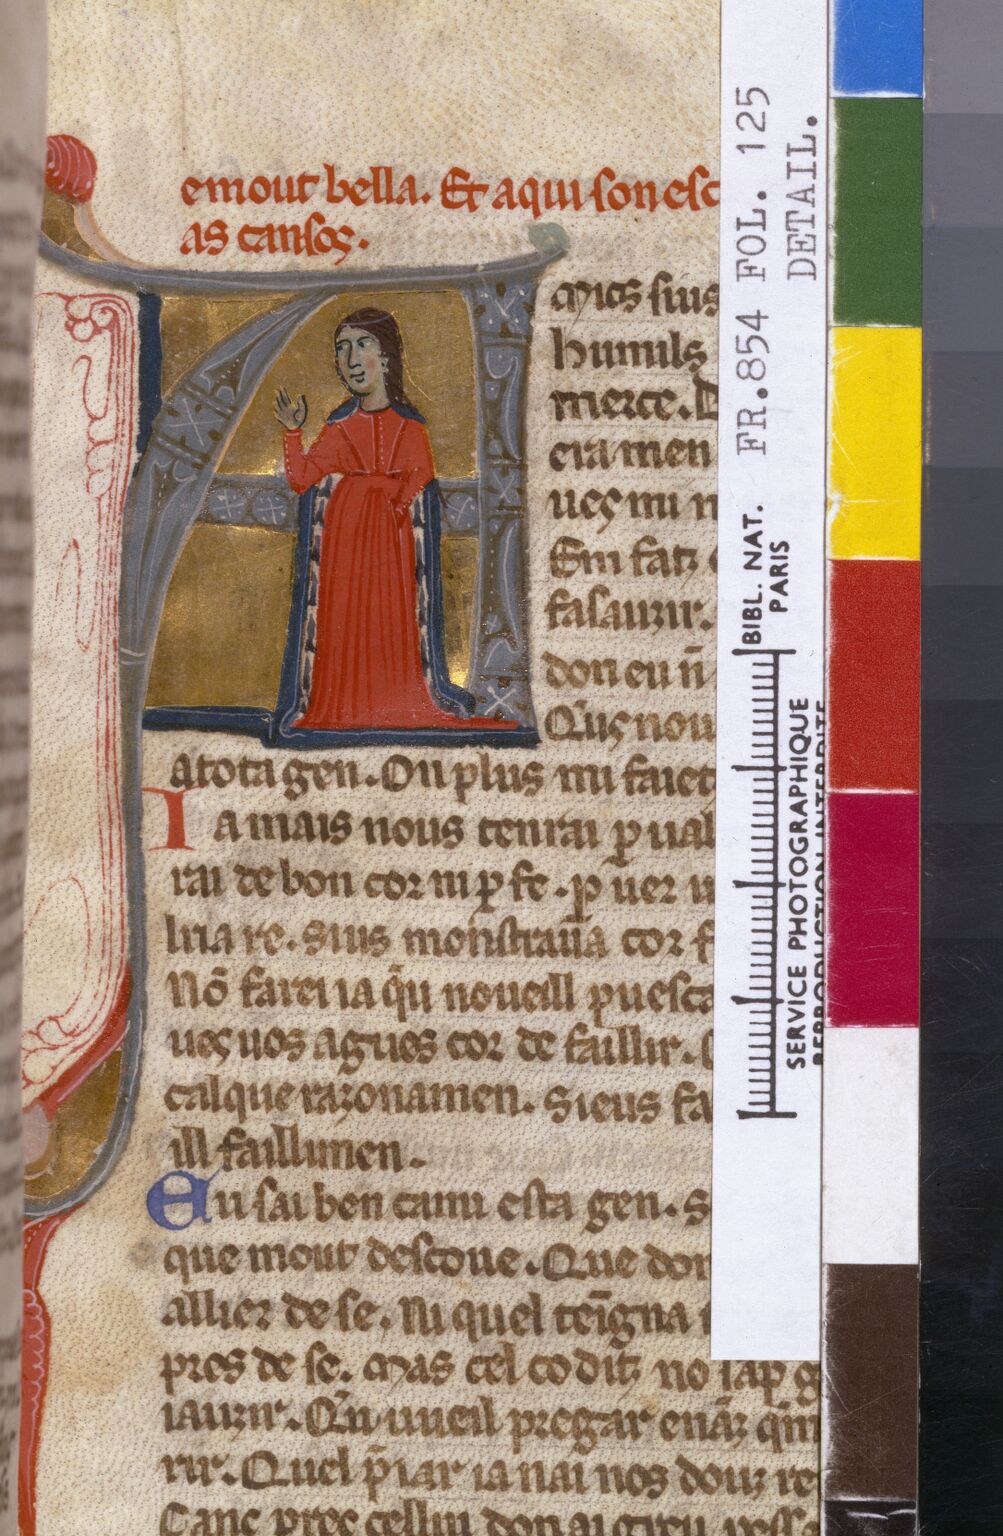 emout bella. Et aqui son esc
as cansos.
Amics sius
humils
merce.
cramen
ueç mi m
Em fatz
fasauzir.
don eu n̄
Qͥeç nou
atota gen. On plus mi faiet
Ia mais nous tenrai ꝑ ual
rai de bon cor ni ꝑ fe. ꝑ uer u
lria re. sius monstraua cor f
Nō farei ia
ueç uos agues cor de faillir.
calque razonamen. Sieus fa
ill faillimen.
Eu sai ben
esta gen. S
que mout descoue. Que don
de se. Ni quel teīgna
pres de se. Mas cel co ditz no
iauzir.
uueil pregar
rir. Quel p̄iar ia nai nos douz re
FR.854 FOL. 125
DETAIL.
BIBL. NAT.
PARIS
SERVICE PHOTOGRAPHIQUE
REPRODUCTION INTERDITE